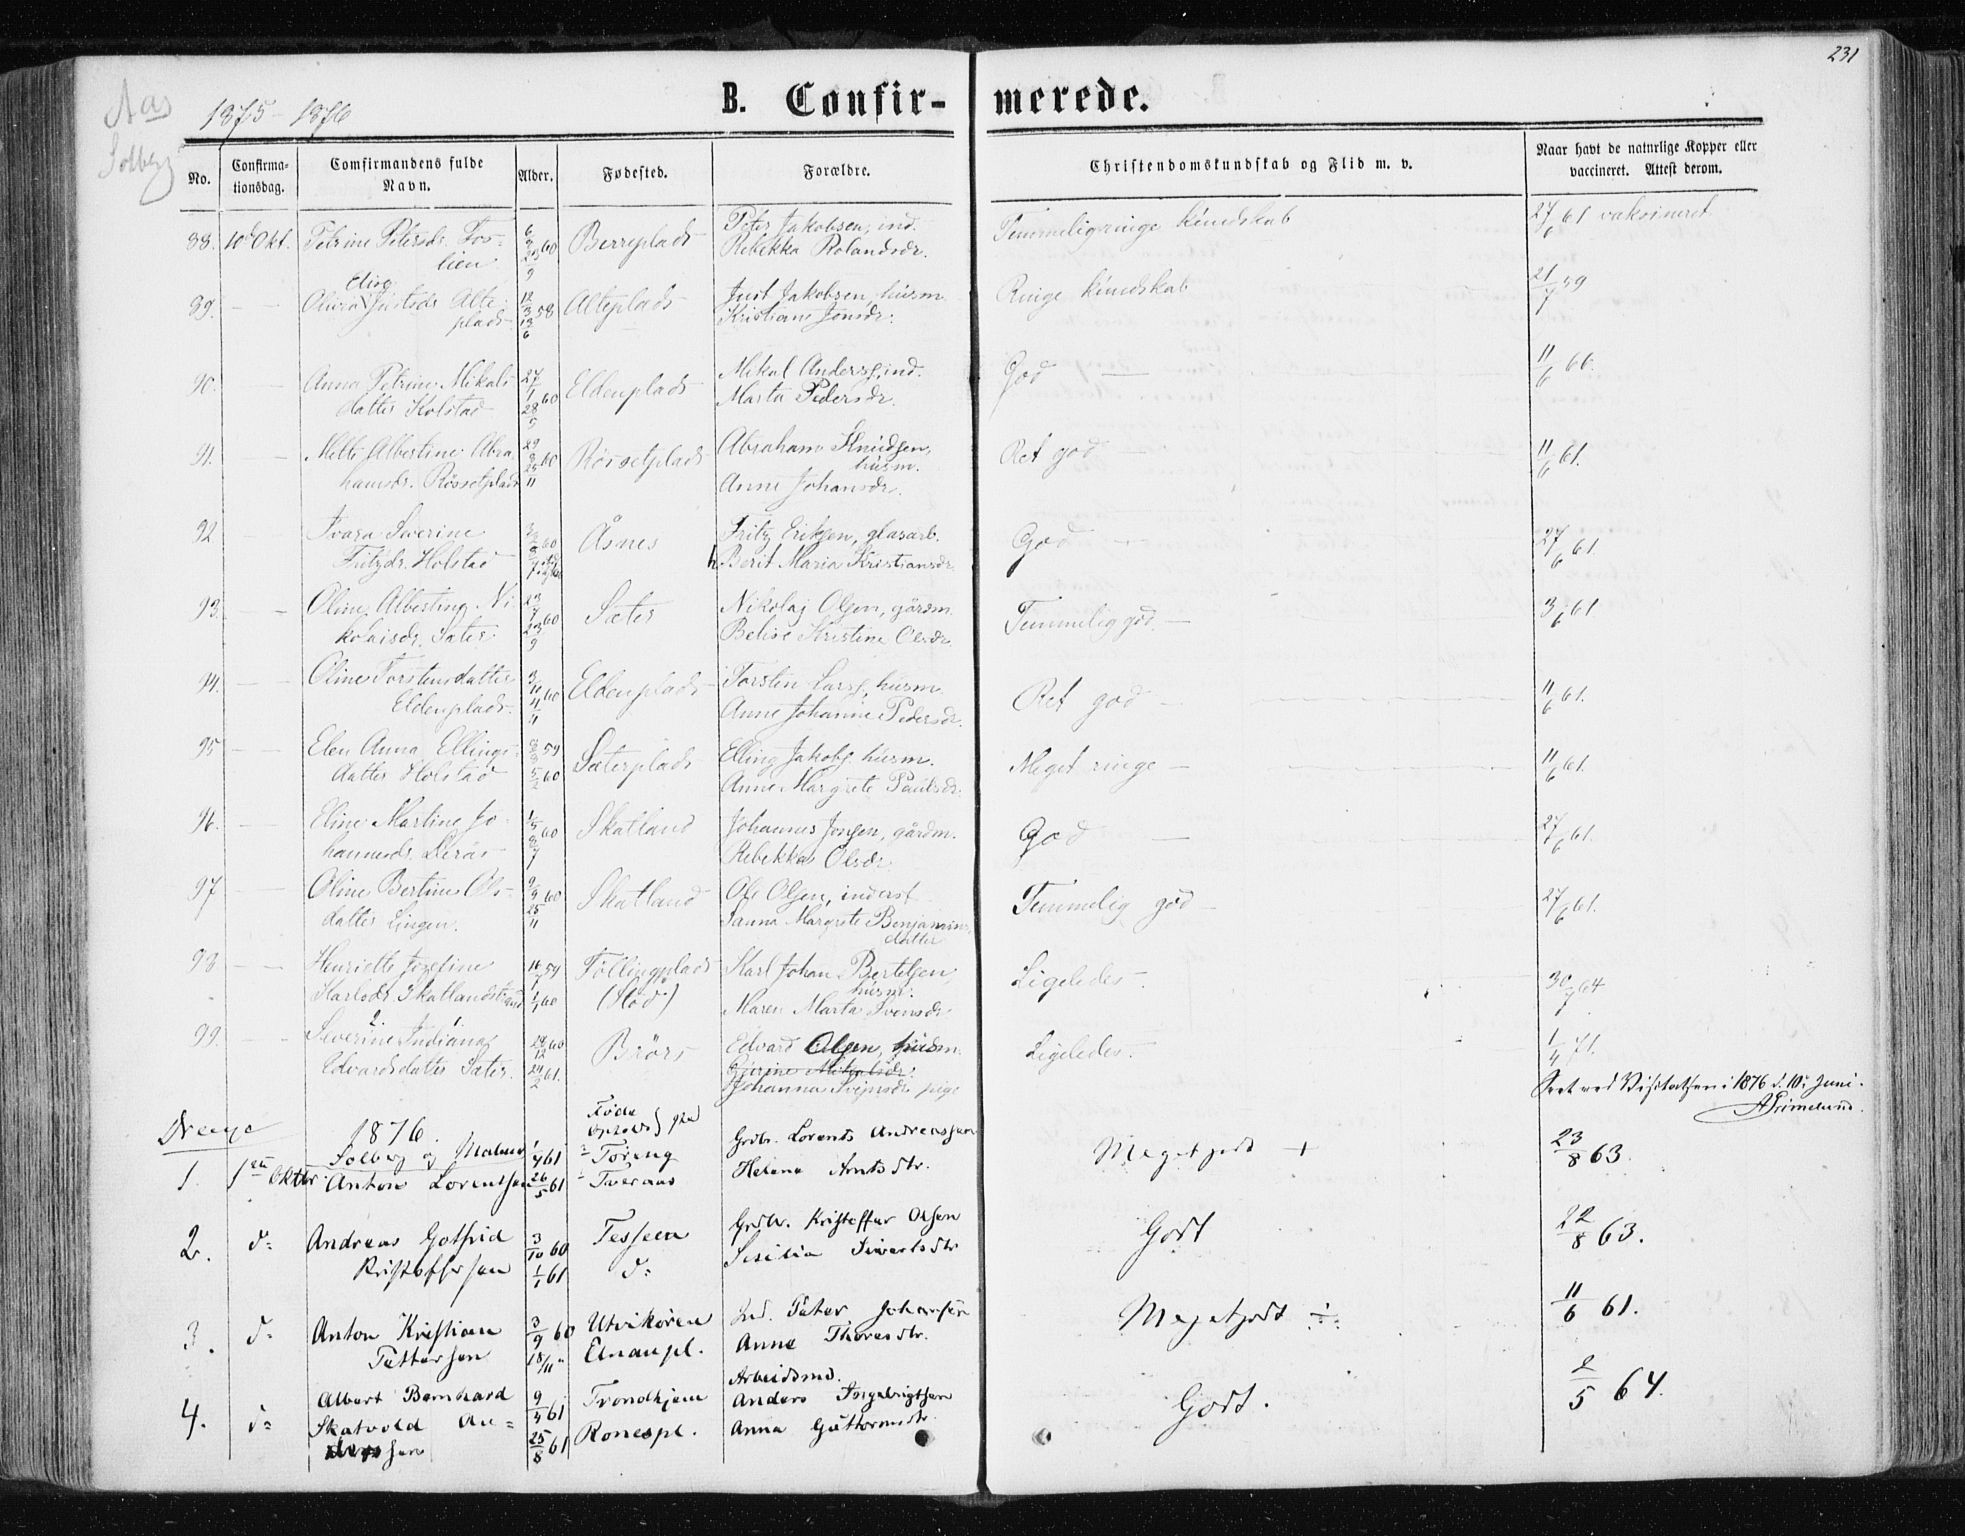 231
Aas
Solberg
1875-1876
B. Confir-
merede.
No.
Confirma-
tionsdag.
Comfirmandens fulde
Navn.
Alder.
Fødested.
Forældre.
Christendomskundskab og Flid m. v.
Naar havt de naturlige Kopper eller
vaccineret. Attest derom.
88. 10d Okt. Petrine Petersdr. Fos-
lien
Berreplads
Peter Jakobsen, ind.
Rebekka Rolandsdr.
Temmelig ringe kundskab
27/6 61 vaksineret
89. Elise
Justsdr. Alte-
plads
12/3 58
13/6
Alteplads
Just Jakobsen, husm.
Kristiane Jonsdr.
Ringe kundskab
21/7 59
90. Anna Petrine Mikals-
datter Kolstad
27/1 60
28/5
Eldenplads
Mikal Anders., ind.
Marta Pedersdr.
God
11/6 66.
91. Mette Albertine Abra-
hamsdr. Røssetplads
Røssetplads
Abraham Knudsen,
husm.
Anne Johansdr.
Ret god
11/6 61.
92 Severine
Fritzdr. Holstad
Åsnes
Fritz Eriksen, glasarb.
Berit Maria Kristiansdr.
God
27/6 61.
93. Oline Albertine Ni-
kolaisdr. Sæter
23/7 60
23/9
Sæter
Nikolaj Olsen, gårdm.
Kristine Olsdr.
Temmelig god
3/6 61
94. Oline Torstensdatter
Eldenplads.
Eldenplads
Torsten Lars., husm.
Anne Johanne Pedersdr.
Ret god
11/6 61.
95 Elen Anna Ellings-
datter Holstad
5/2 60
Sæterplads
Elling Jakobs. husm.
Anne Margrete Paulsdr.
Meget ringe
11/6 61.
96. Eline Martine Jo-
hannesdr. Lerås
1/5 60
8/7
Skatland
Johannes Jonsen, gårdm.
Rebekka Olsdr.
God
27/6 61.
97 Oline Bertine Ols-
datter Lingen.
9/9 60
25/11
Skatland
Ole Olsen, inderst
Sanna Margrete Benjamins-
datter
Temmelig god
27/6 61.
98 Henriette Josefine
Karlsdr. Skatlandstrand
1/1 60
Føllingplads
(Stod)
Karl Johan Bertelsen,
husm.
Maren Marta Svensdr.
Ligeledes
30/7 64
99. 2. 1
Severine Indiana
Edvardsdatter Sæter.
28/12 60
24/2 61.
Brørs
Edvard Olsen, husm.
Gurine Mikalsdr.
Johanna Svensdr. pige
Ligeledes
1/4 71.
Seet ved Visitatsen i 1876 d. 10. Juni.
A Grimelund.
Drenge 1876. Føde
Opholds } sted
1. 1ste Oktbr. Solberg og Malmo
Anton Lorentsen
1/4 61
26/5 61
Tøring
Tveraas
Grdbr. Lorents Andreassen
Helena Arntsdtr.
Megetgodt +
23/8 63.
2. do Andreas Gotfrid
Kristoffersen
3/10 60
1/1 61
Tessem
do
Grdbr. Kristoffer Olsen
Sisilia Sivertsdtr
Godt
22/8 63.
3. do Anton Kristian
Pettersen
3/9 60
18/11 "
Utvikøren
Elnanpl.
Ind. Peter Johansen
Anne Thoresdtr.
Megetgodt ÷
11/6 61.
4. do Albert Bernhard
Skatvold An-
dersen
9/4 61
25/8 61
Trondhjem
Ronespl.
Arbeidsmd.
Anders Ingebrigtsen
Anna Guttormsdtr.
Godt.
2/5 64.